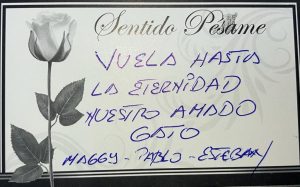 Sentido Pésame
VUELA HASTA
LA ETERNIDAD
NUESTRO AMADO
GATO
MAGGY - PABLO - ESTEBAN